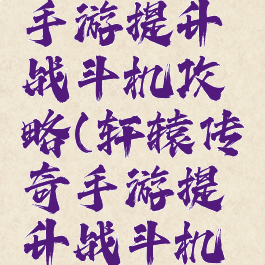 手游提升
战斗机攻
略(轩辕传
奇手游提
升战斗机